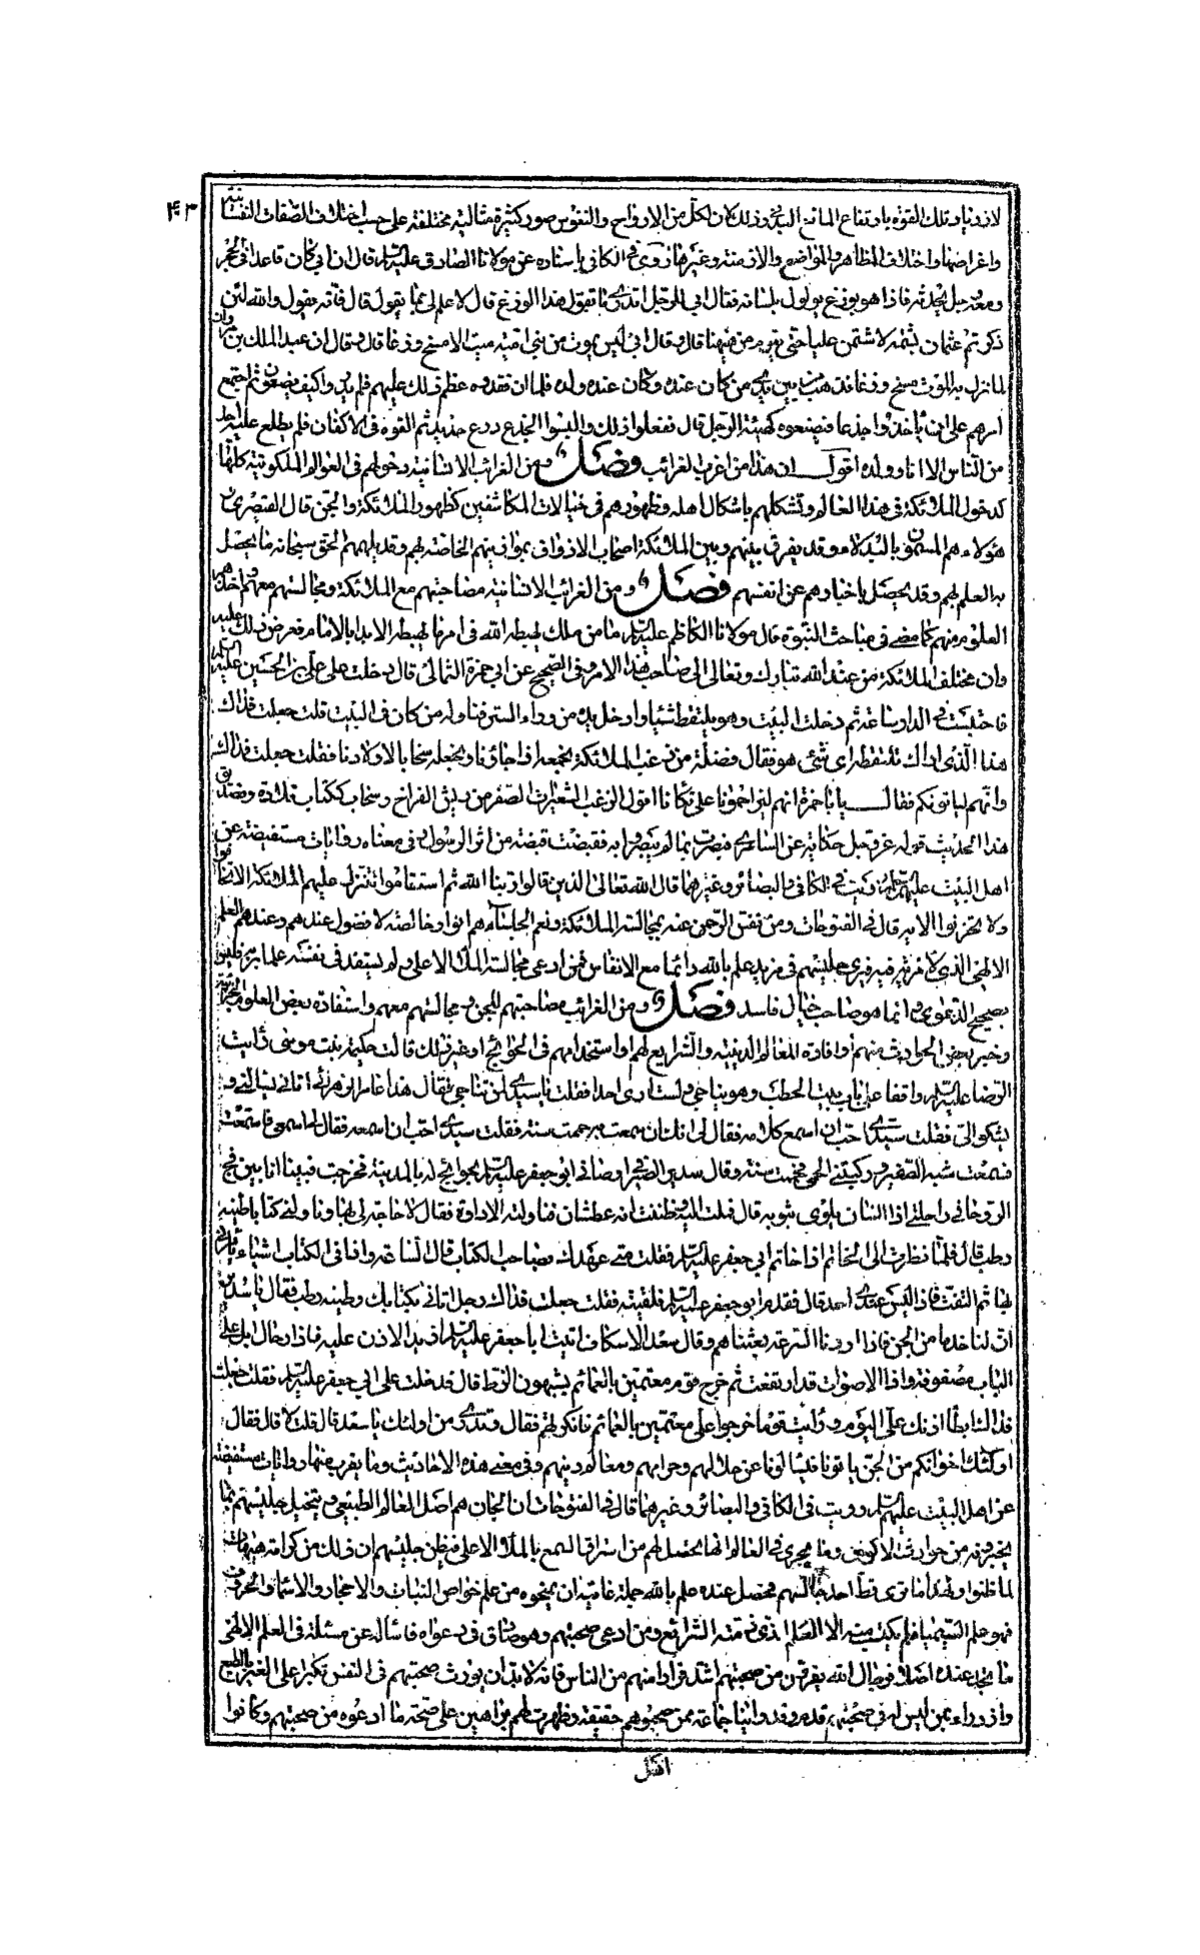 ۴۰۳
لازدياد تلك القوة بارتفاع المانع البدني ولذلك كان لكل من الارواح والنفوس صور كثيرة مثالية مختلفة على حسب اختلاف الصفات النفسانية
واغراضها واختلاف المظاهر والمواضع والازمنة وغيرها روى في الكافي باسناده عن مولانا الصادق عليه السلام قال ان ابي كان قاعدا في الحجر
ومعه رجل يحدثه فاذا هو بوزغ يولول بلسانه فقال ابي للرجل اتدري ما يقول هذا الوزغ قال لا علم لي بما يقول قال فانه يقول والله لئن
ذكرتم عثمان بشتمة لاشتمن عليا حتى يقوم من هيهنا قال وقال ابي ليس يموت من بني امية ميت الا مسخ وزغا قال وقال ان عبد الملك بن مروان
لما نزل به الموت مسخ وزغا فذهب من بين يدي من كان عنده وكان عنده ولده فلما ان فقدوه عظم ذلك عليهم فلم يدروا كيف يصنعون ثم اجتمع
امرهم على ان يأخذوا جذعا فيصنعوه كهيئة الرجل قال ففعلوا ذلك والبسوا الجذع درع حديد ثم القوه في الاكفان فلم يطلع عليه احد
من الناس الا انا وولده اقول ان هذا من اغرب الغرائب فصل ومن الغرائب الانسانية دخولهم في العوالم الملكوتية كلها
كدخول الملائكة في هذا العالم وتشكلهم باشكال اهله وظهورهم في خيالات المكاشفين كظهور الملائكة والجن قال القيصري
هؤلاء هم المسمون بالبدلاء وقد يفرق بينهم وبين الملائكة اصحاب الاذواق بموازينهم الخاصة لهم وقد يلهمهم الحق سبحانه ما يحصل
به العلم لهم وقد يحصل باخبارهم عن انفسهم فصل ومن الغرائب الانسانية مصاحبتهم مع الملائكة ومجالستهم معهم واخذهم
العلوم منهم كما مضى في مباحث النبوة قال مولانا الكاظم عليه السلام ما من ملك يهبطه الله في امر ما يهبطه الا بدا بالامام فعرض ذلك عليه
وان مختلف الملائكة من عند الله تبارك وتعالى الى صاحب هذا الامر وفي الصحيح عن ابي حمزة الثمالي قال دخلت على علي بن الحسين عليه السلام
فاحتبست في الدار ساعة ثم دخلت البيت وهو يلتقط شيئا وادخل يده من وراء الستر فناوله من كان في البيت قلت جعلت فداك
هذا الذي اراك تلتقطه اي شئ هو فقال فضلة من زغب الملائكة نجمعه اذا جاؤنا ونجعله سخابا لاولادنا فقلت جعلت فداك
وانهم لياتونكم فقال يا ابا حمزة انهم ليزاحمونا على تكأتنا اقول الزغب الشعيرات الصفر من ريش الفراخ وسخاب ككتاب قلادة وتصديق
هذا الحديث قوله عز وجل حكاية عن السامري فبصرت بما لم يبصروا به فقبضت قبضة من اثر الرسول وفي معناه روايات مستفيضة عن
اهل البيت عليهم السلام رويت في الكافي والبصائر وغيرهما قال الله تعالى الذين قالوا ربنا الله ثم استقاموا تتنزل عليهم الملائكة الا تخافوا
ولا تحزنوا الاية قال في الفتوحات ومن نفس الرحمن عنه بمجالسة الملائكة ونعم الجلساء هم انوار خالصة لا فضول عندهم وعندهم العلم
الالهي الذي لا مرية فيه فيرى جليسهم في مزيد علم بالله دائما مع الانفاس فمن ادعى مجالسة الملأ الاعلى ولم يستفد في نفسه علما بربه فليس
بصحيح الدعوى وانما هو صاحب خيال فاسد فصل ومن الغرائب مصاحبتهم للجن ومجالستهم معهم واستفادة بعض العلوم الجزئية
وخبر بعض الحوادث منهم او افادة المعالم الدينية والشرايع لهم او استخدامهم في الحوائج او غير ذلك قالت حكيمة بنت موسى رأيت
الرضا عليه السلام واقفا على باب بيت الحطب وهو يناجي ولست ارى احدا فقلت يا سيدي لمن تناجي فقال هذا عامر الزهرائي اتاني يسألني و
يشكو الي فقلت سيدي احب ان اسمع كلامه فقال لي انك ان سمعت به حممت سنة فقلت سيدي احب ان اسمعه فقال لي اسمعي فاستمعت
فسمعت شبه الصفير وركبتني الحمى فحممت سنة وقال سدير الصيرفي اوصاني ابو جعفر عليه السلام بحوائج له بالمدينة فخرجت فبينا انا بين فج
الروحاء على راحلتي اذا انسان يلوى بثوبه قال فملت اليه وظننت انه عطشان فناولته الاداوة فقال لا حاجة لي بها وناولني كتابا طينه
رطب قال فلما نظرت الى الخاتم اذا خاتم ابي جعفر عليه السلام فقلت متى عهدك بصاحب الكتاب قال الساعة واذا في الكتاب اشياء يأمرني
بها ثم التفت فاذا ليس عندي احد قال فقدم ابو جعفر عليه السلام فلقيته فقلت جعلت فداك رجل اتاني بكتابك وطينه رطب فقال يا سدير
ان لنا خدما من الجن فاذا اردنا السرعة بعثناهم وقال سعد الاسكاف اتيت ابا جعفر عليه السلام اريد الاذن عليه فاذا رحال ابل على
الباب مصفوفة واذا الاصوات قد ارتفعت ثم خرج قوم معتمين بالعمائم يشبهون الزط قال فدخلت على ابي جعفر عليه السلام فقلت جعلت
فداك ابطأ اذنك علي اليوم ورأيت قوما خرجوا علي معتمين بالعمائم فانكرتهم فقال وتدري من اولئك يا سعد قال قلت لا قال فقال
اولئك اخوانكم من الجن ياتونا فيسألونا عن حلالهم وحرامهم ومعالم دينهم وفي معنى هذه الاحاديث وما يقرب منها روايات مستفيضة
عن اهل البيت عليهم السلام رويت في الكافي والبصائر وغيرهما قال في الفتوحات ان الجان هم اجهل العالم الطبيعي ويتخيل جليسهم بما
يخبرونه من حوادث الاكوان وما يجري في العالم انها يحصل لهم من استراق السمع بالملأ الاعلى فيظن جليسهم ان ذلك من كرامته هيهات
لما ظنوا ولهذا ما ترى قط احدا جالسهم فحصل عنده علم بالله جملة غايته ان يمنحوه من علم خواص النبات والاحجار والاسماء والحروف
فهو علم السيميا فلم يكتسب منهم الا العلم الذي ذمته الشرائع ومن ادعى صحبتهم وهو صادق في دعواه فاسأله عن مسئلة في العلم الالهي
ما تجد عنده اصلا فرجال الله يفرون من صحبتهم اشد فرارا منهم من الناس فانه لا بد ان يورث صحبتهم في النفس تكبرا على الغير بالطبع
وازدراء بمن ليس له في صحبتهم قدم وقد راينا جماعة ممن صحبوهم حقيقة وظهرت لهم براهين على صحة ما ادعوه من صحبتهم وكانوا
اهل